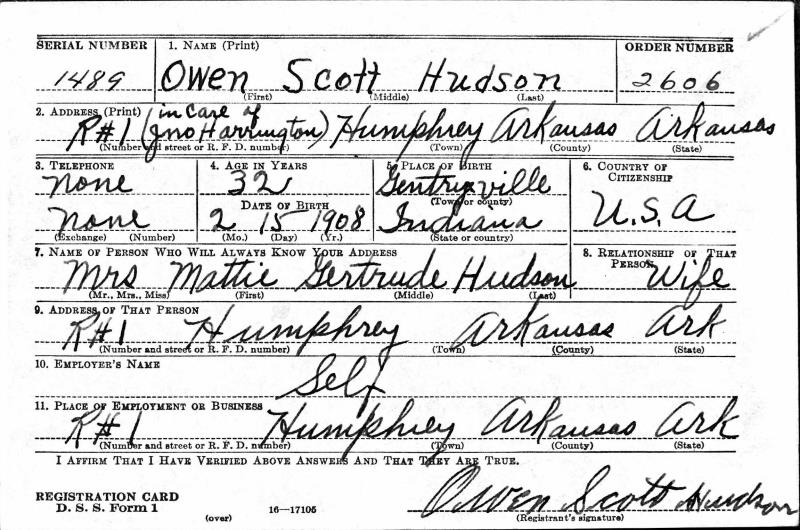 SERIAL NUMBER 1. NAME (Print) ORDER NUMBER
1489 Owen Scott Hudson 2606
(First) (Middle) (Last)
2. ADDRESS (Print) in care of
R#1 (Jno Harrington) Humphrey Arkansas Arkansas
(Number and street or R. F. D. number) (Town) (County) (State)
3. TELEPHONE 4. AGE IN YEARS 5. PLACE OF BIRTH 6. COUNTRY OF
CITIZENSHIP
None 32 Gentryville
DATE OF BIRTH (Town or county)
None 2 15 1908 Indiana U.S.A
(Exchange) (Number) (Mo.) (Day) (Yr.) (State or country)
7. NAME OF PERSON WHO WILL ALWAYS KNOW YOUR ADDRESS 8. RELATIONSHIP OF THAT
PERSON
Mrs Mattie Gertrude Hudson Wife
(Mr., Mrs., Miss) (First) (Middle) (Last)
9. ADDRESS OF THAT PERSON
R#1 Humphrey Arkansas Ark
(Number and street or R. F. D. number) (Town) (County) (State)
10. EMPLOYER'S NAME
Self
11. PLACE OF EMPLOYMENT OR BUSINESS
R#1 Humphrey Arkansas Ark
(Number and street or R. F. D. number) (Town) (County) (State)
I AFFIRM THAT I HAVE VERIFIED ABOVE ANSWERS AND THAT THEY ARE TRUE.
Owen Scott Hudson
REGISTRATION CARD
D. S. S. Form 1 16—17105 (Registrant's signature)
(over)